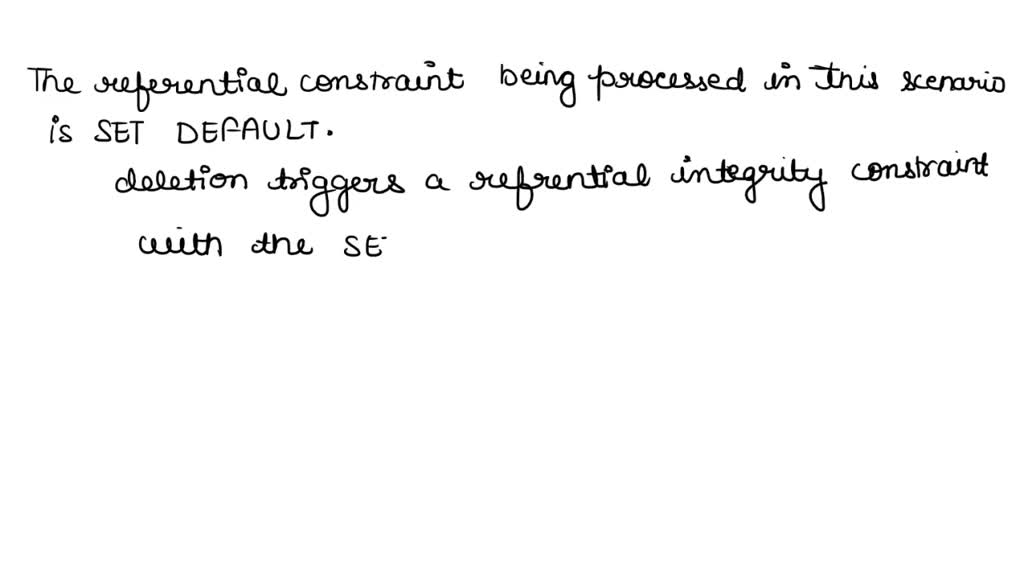 The referential constraint being processed in this scenario
is SET DEFAULT.
deletion triggers a refrential integrity constraint
with the SE